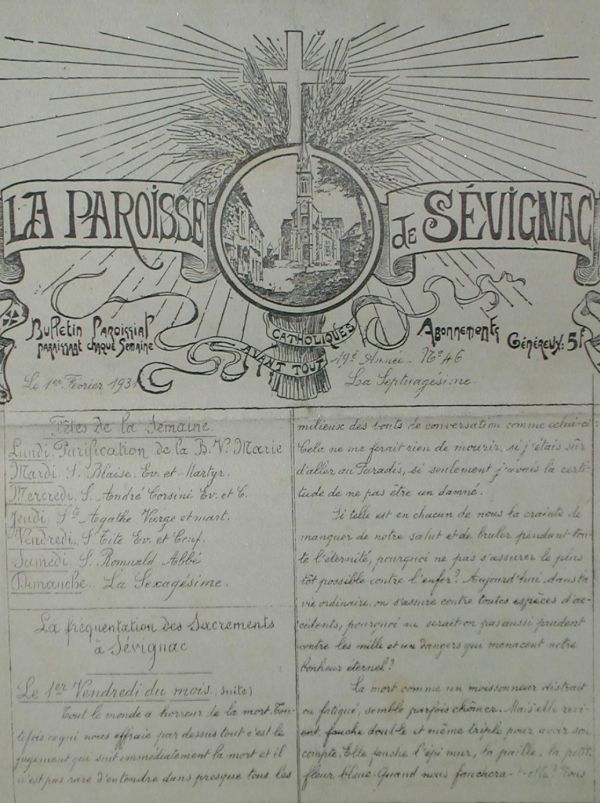 LA PAROISSE DE SÉVIGNAC
Bulletin Paroissial
paraissant chaque Semaine
CATHOLIQUES
AVANT TOUT
Abonnements
Généreux: 5f
19e Année. No 46
Le 1er Février 1931
La Septuagésime.
Fêtes de la Semaine
Lundi. Purification de la B. V. Marie
Mardi. S. Blaise. Ev. et Martyr.
Mercredi. S. André Corsini Ev. et C.
Jeudi. Ste Agathe Vierge et mart.
Vendredi. S. Tite Ev. et Conf.
Samedi. S. Romuald Abbé
Dimanche. La Sexagésime.
La fréquentation des Sacrements
à Sévignac
Le 1er Vendredi du mois. (suite)
Tout le monde a horreur de la mort. Tou-
tefois ce qui nous effraie par dessus tout c'est le
jugement qui suit immédiatement la mort et il
n'est pas rare d'entendre dans presque tous les
milieux des bouts de conversation comme celui-ci:
Cela ne me ferait rien de mourir, si j'étais sûr
d'aller au Paradis, si seulement j'avais la certi-
tude de ne pas être un damné.
Si telle est en chacun de nous la crainte de
manquer de notre salut et de bruler pendant tou-
te l'éternité, pourquoi ne pas s'assurer le plus
tôt possible contre l'enfer? Aujourd'hui, dans la
vie ordinaire, on s'assure contre toutes espèces d'ac-
cidents, pourquoi ne serait on pas aussi prudent
contre les mille et un dangers qui menacent notre
bonheur éternel?
La mort comme un moissonneur distrait
ou fatigué, semble parfois chômer. Mais elle revi-
ent, fauche double et même triple pour avoir son
compte. Elle fauche l'épi mur, la paille, la petite
fleur bleue. Quand nous fauchera-t-elle? Nous